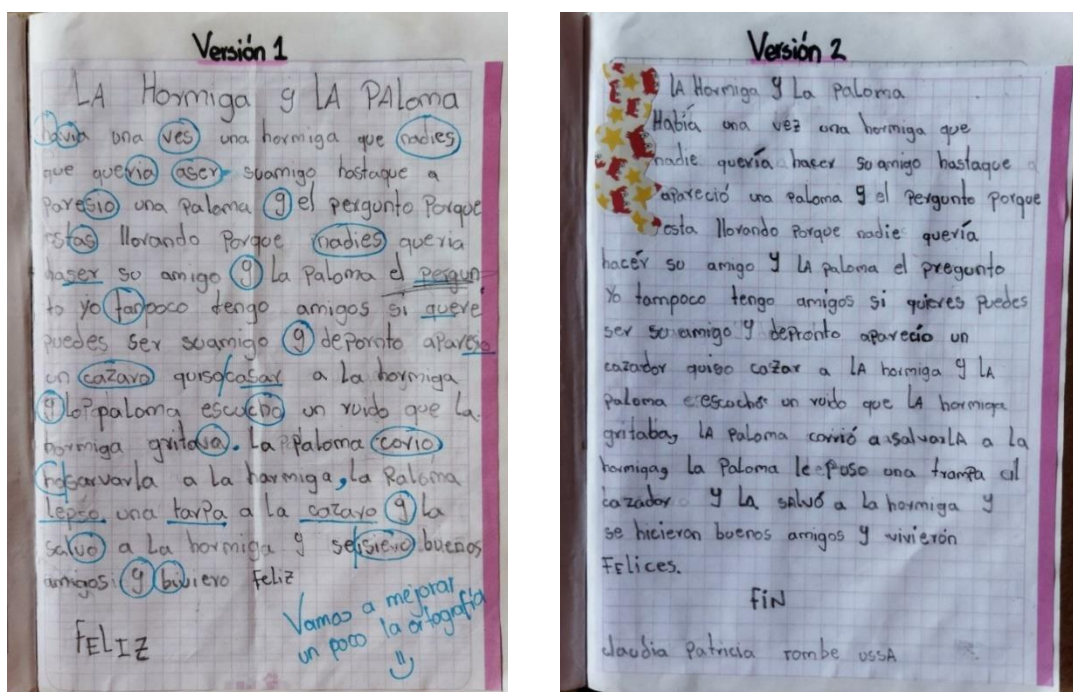 Versión 1
LA Hormiga y LA PALoma
havia una ves una hormiga que nadies
que queria aser suamigo hastaque a
paresio una paloma y el pergunto Porque
estas llorando Porque nadies queria
haser su amigo y La Paloma el pergun
to yo tanpoco tengo amigos si quere
puedes ser suamigo y deponto apareso
un cazavo quiso casar a La hormiga
y La paloma escucho un ruido que La
hormiga gritava. La Paloma corio
ha sarvarla a la harmiga, la Paloma
lepso una tarpa a la cazavo y la
salvo a La hormiga y seisiero buenos
amigos y buviero Feliz
FELIZ
Vamos a mejorar
un poco la ortografía
Versión 2
LA Hormiga y La paloma
Había una vez una hormiga que
nadie quería hacer su amigo hastaque
apareció una paloma y el Pergunto Porque
esta llorando Porque nadie quería
hacer su amigo y LA paloma el pregunto
Yo tampoco tengo amigos si quieres puedes
ser su amigo y depronto aparecio un
cazador quiso cazar a LA hormiga y LA
paloma escucho un ruido que LA hormiga
gritaba, LA Paloma corrió a salvarLA a la
hormiga, La Paloma le puso una trampa al
cazador y La salvó a La hormiga y
se hicieron buenos amigos y vivierón
FELices.
FiN
claudia Patricia rombe ussA